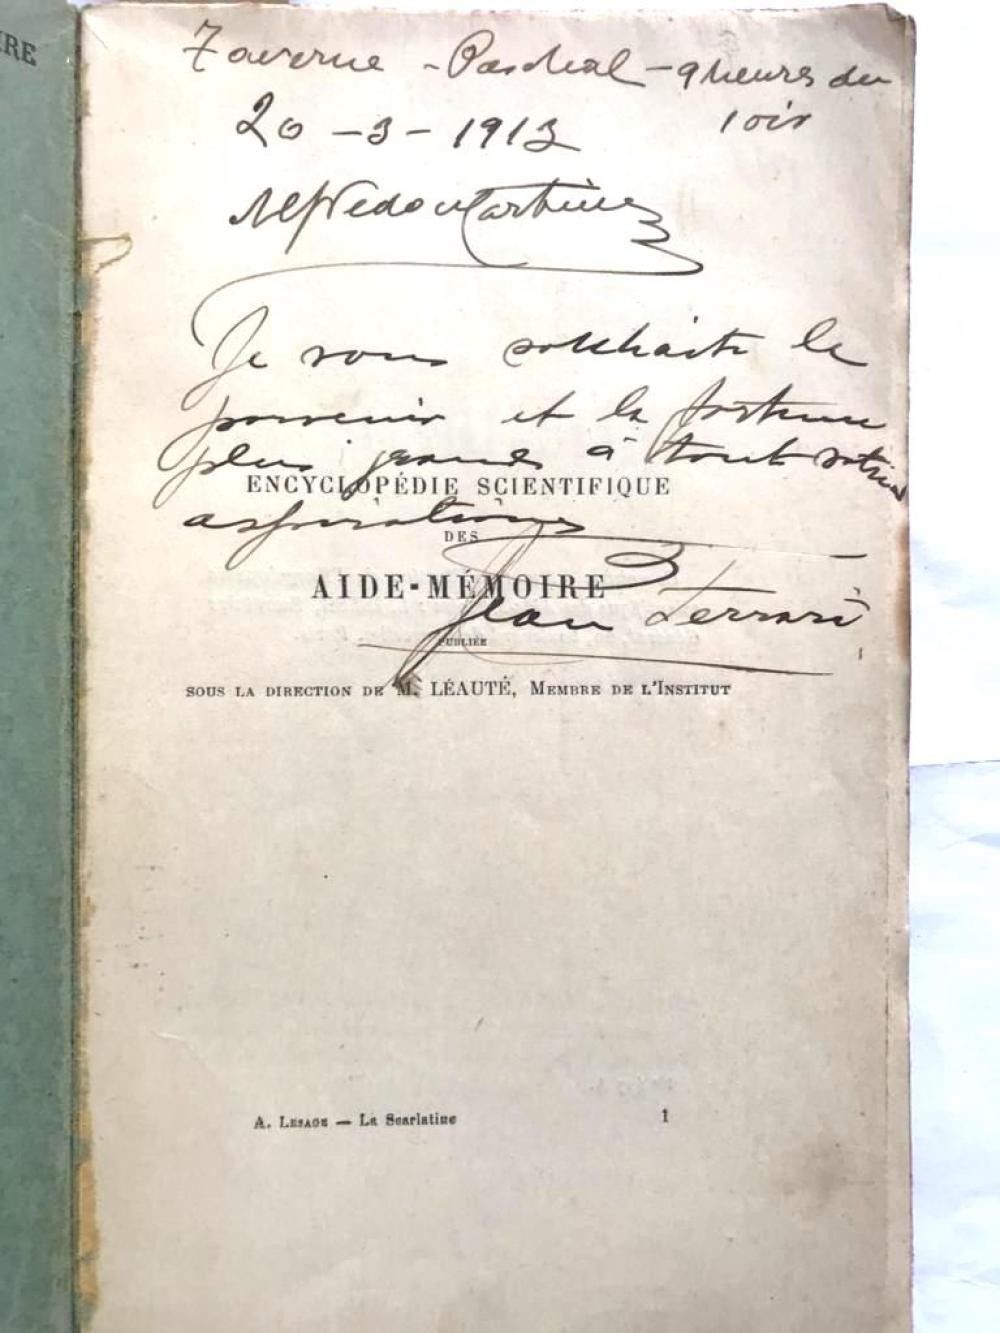 IRE
Taverne - Paschal - 9 heures du
soir
20 - 3 - 1913
Alfredo Martinez
Je vous souhaite le
souvenir et la fortune
plus grands à tout
aspirations
ENCYCLOPÉDIE SCIENTIFIQUE
DES
AIDE-MÉMOIRE
Jean Ferrari
PUBLIÉE
SOUS LA DIRECTION DE M. LÉAUTÉ, MEMBRE DE L'INSTITUT
A. LESAGE — La Scarlatine 1